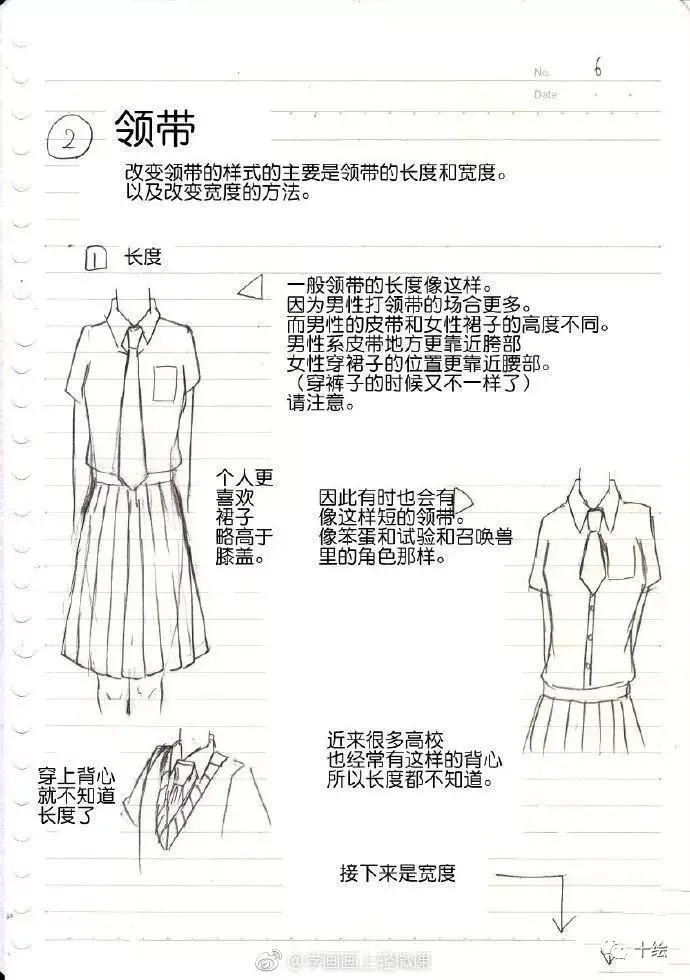 No. 6
Date
2 领带
改变领带的样式的主要是领带的长度和宽度。
以及改变宽度的方法。
1 长度
一般领带的长度像这样。
因为男性打领带的场合更多。
而男性的皮带和女性裙子的高度不同。
男性系皮带地方更靠近胯部
女性穿裙子的位置更靠近腰部。
（穿裤子的时候又不一样了）
请注意。
个人更
喜欢
裙子
略高于
膝盖。
因此有时也会有
像这样短的领带。
像笨蛋和试验和召唤兽
里的角色那样。
近来很多高校
也经常有这样的背心
所以长度都不知道。
穿上背心
就不知道
长度了
接下来是宽度
@学画画上轻微课
十绘